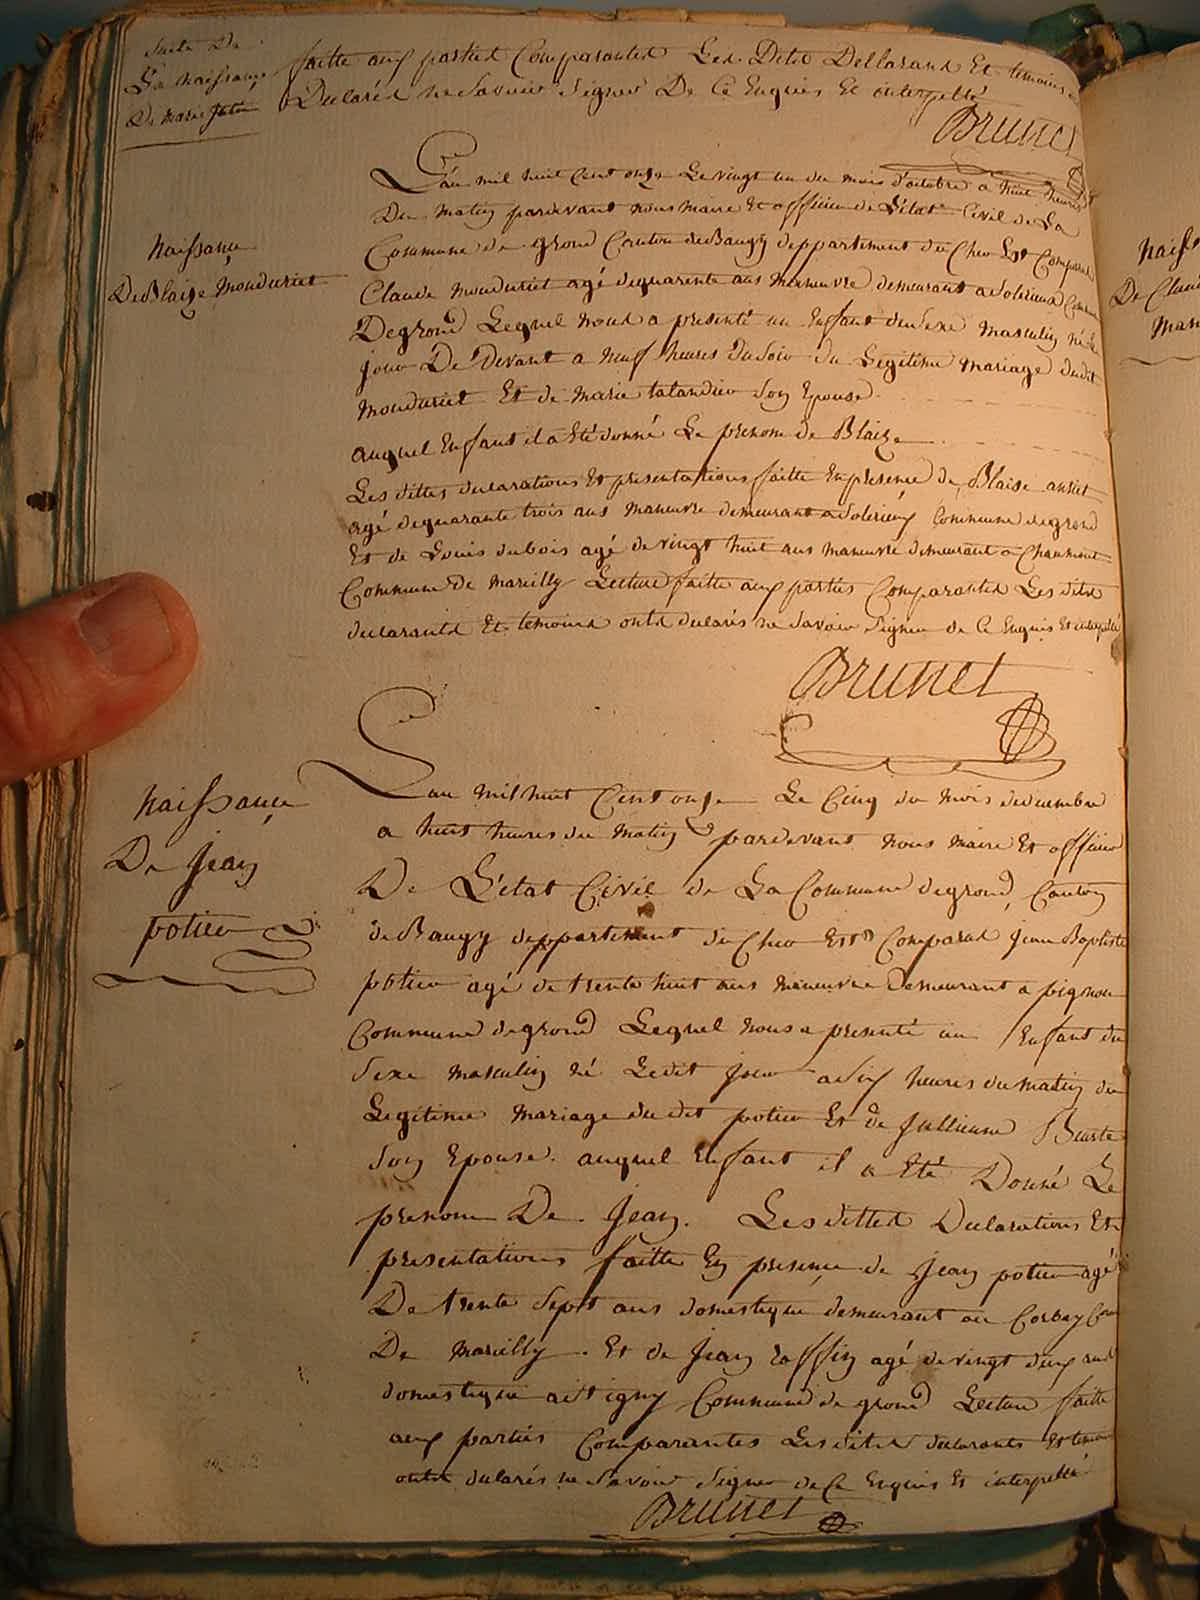 Suite De
La naissance
De marie
faitte aux parties Comparantes Les Dits Déclarans Et temoins
Déclarés ne Savoir Signer De Ce Enquis Et interpellé
Brunet
L'an mil huit Cent onze Le vingt un du mois d'octobre a huit heures
Du matin pardevant nous maire Et officier de L'état Civil de La
Commune de grond Canton de Baugy deppartement du Cher Est Comparu
Naissance
De Blaize Monduriet
Claude Monduriet agé de quarante ans maneuvre demeurant a Solerieux
De grond Lequel nous a presenté un Enfant du Sexe masculin né le
jour De Devant a neuf heures du Soir du Legitime mariage dudit
Monduriet Et de Marie talandier Son Epouse
auquel Enfant il a Eté donné Le prenom de Blaize
Les dittes declarations Et presentations faitte En presence de Blaise
agé de quarante trois ans maneuvre demeurant a Solerieux Commune de grond
Et de Louis dubois agé de vingt huit ans maneuvre demeurant a Chaumont
Commune De Marcilly Lecture faitte aux parties Comparantes Les dits
declarants Et temoins ontd declarés ne Savoir Signer de Ce Enquis Et interpellé
Brunet
L'an mil huit Cent onze Le Cinq du mois decembre
a huit heures du Matin pardevant nous maire Et officier
Naissance
De Jean
potier
De L'état Civil de La Commune de grond, Canton
de Baugy deppartement du Cher Est Comparu Jean Baptiste
potier agé de trente huit ans maneuvre Demeurant a pignou
Commune de grond Lequel nous a presenté un Enfant du
Sexe masculin né Ledit jour a Six heures du matin du
Legitime mariage du dit potier Et de Jullienne
Son Epouse. auquel Enfant il a Eté Donné Le
prenom De Jean. Les dittes Declarations Et
presentations faitte En presence de Jean potier agé
De trente Sept ans domestique demeurant au Corbay Com
De Marcilly. Et de Jean raffin agé de vingt deux ans
domestique a Commune de grond Lecture faitte
aux parties Comparantes Les dits declarants Et temoins
ontd declarés ne Savoir Signer de Ce Enquis Et interpellé
Brunet
Naiss
De Clau
Man